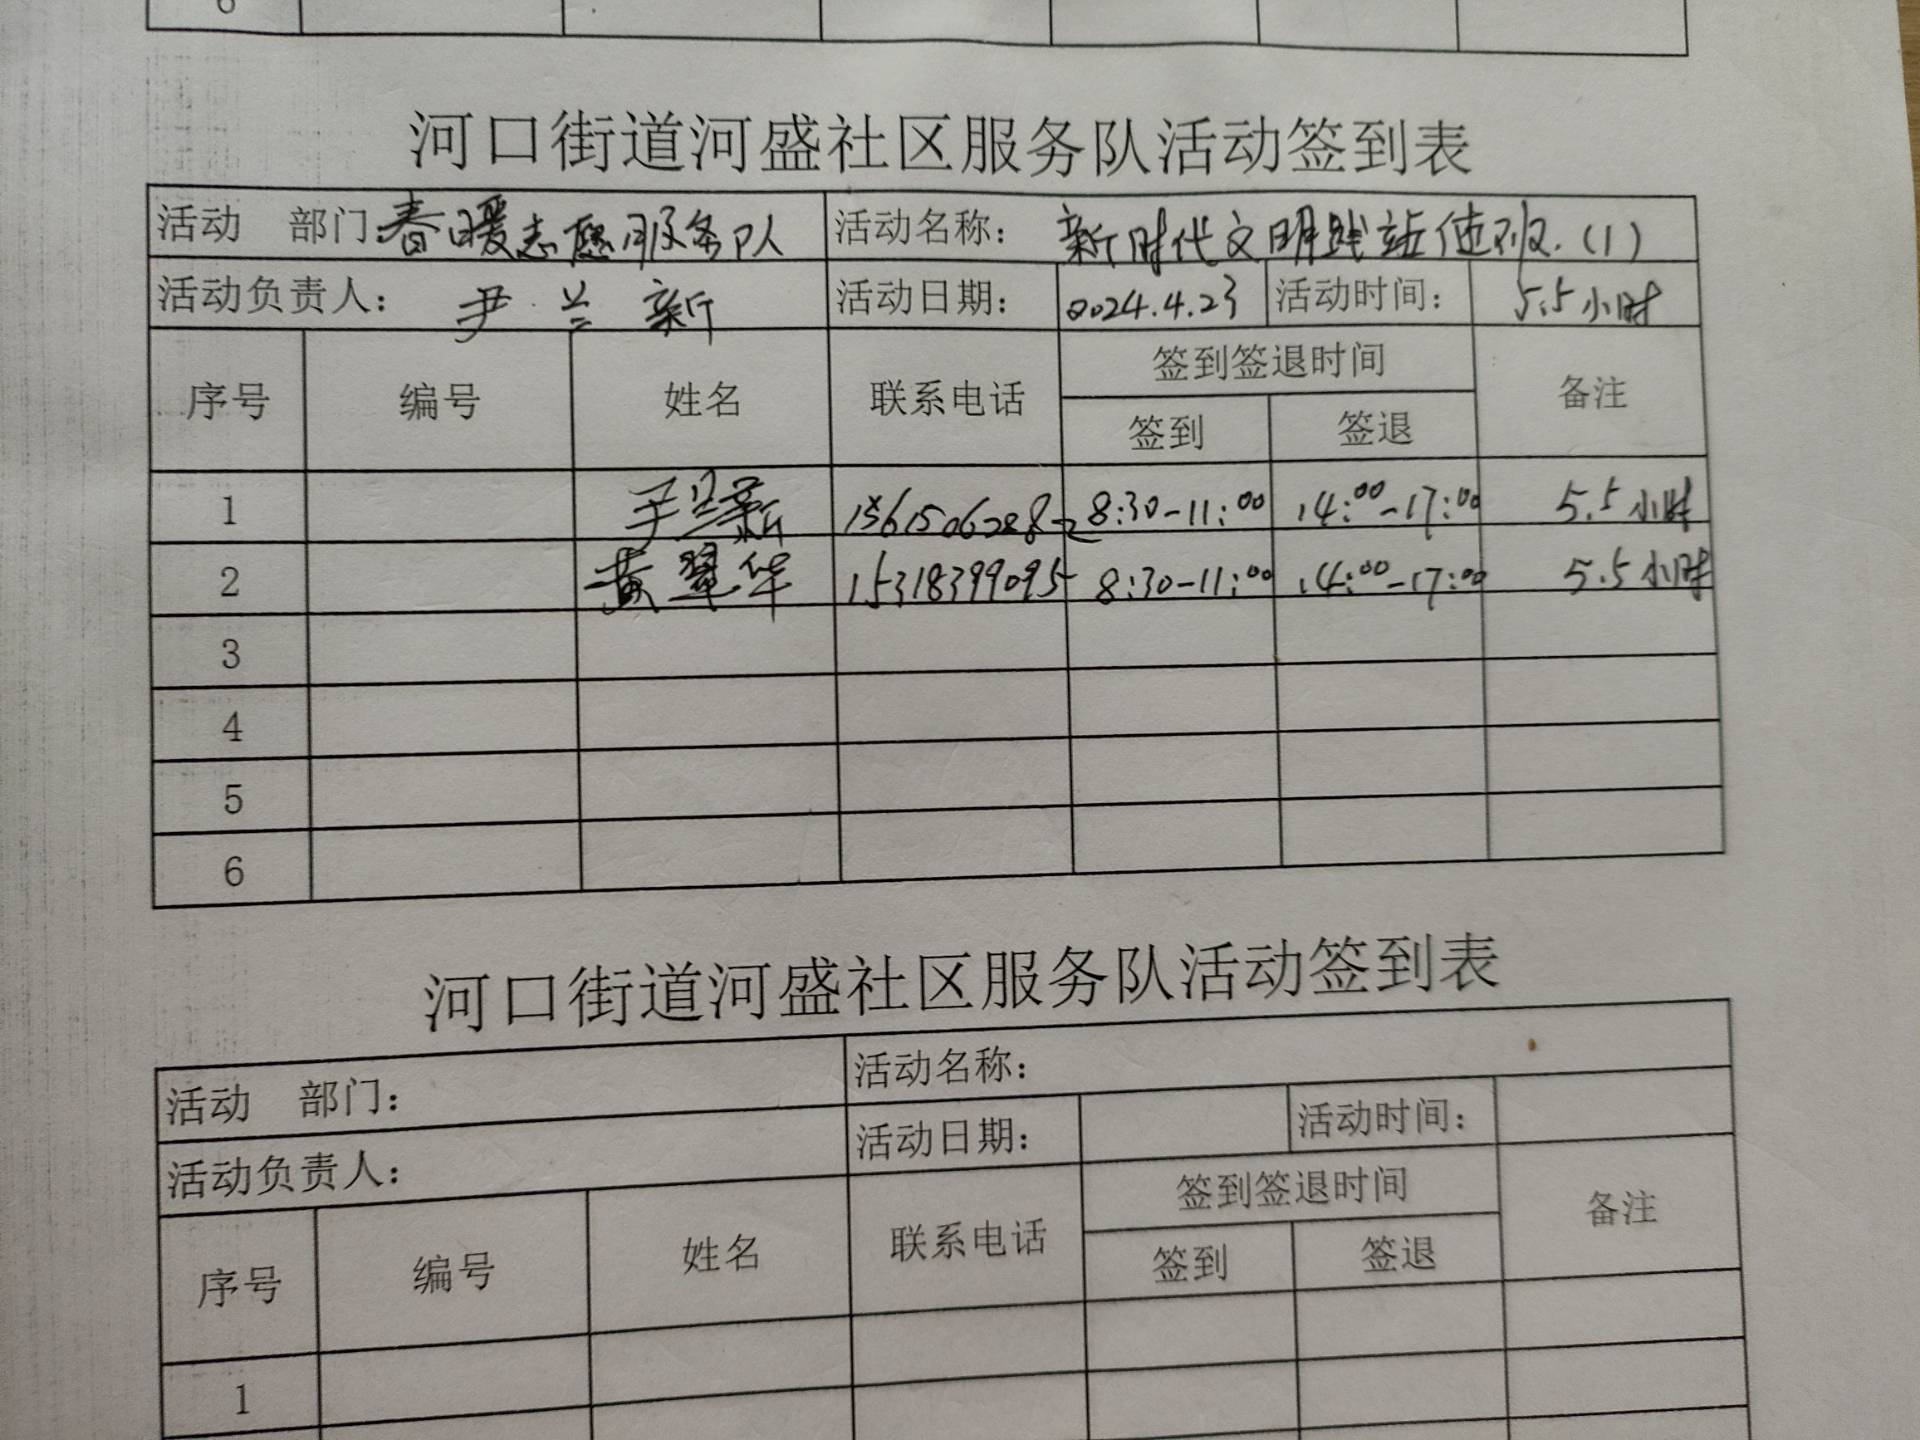 6
河口街道河盛社区服务队活动签到表
活动 部门:春暖志愿服务队 活动名称: 新时代文明践站值班.(1)
活动负责人: 尹兰新 活动日期: 2024.4.23 活动时间: 5.5小时
序号 编号 姓名 联系电话 签到签退时间 备注
签到 签退
1 尹兰新 15615062882 8:30-11:00 14:00-17:00 5.5小时
2 黄翠华 15318399095 8:30-11:00 14:00-17:00 5.5小时
3
4
5
6
河口街道河盛社区服务队活动签到表
活动 部门: 活动名称:
活动负责人: 活动日期: 活动时间:
序号 编号 姓名 联系电话 签到签退时间 备注
签到 签退
1